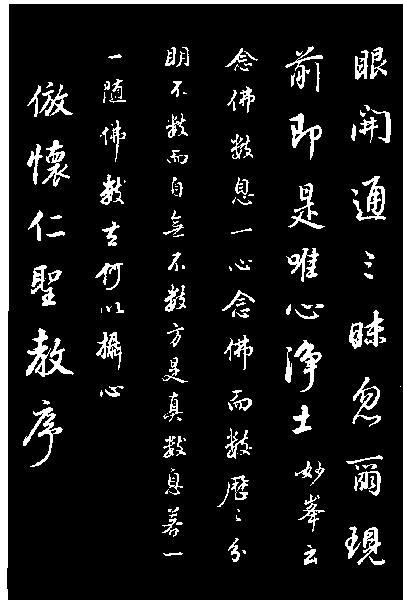 眼開通三昧忽爾現
前即是唯心淨土 妙峯云
念佛數息一心念佛而數歷〻分
明不數而自無不數方是真數息若一
一隨佛數去何以攝心
倣懷仁聖教序